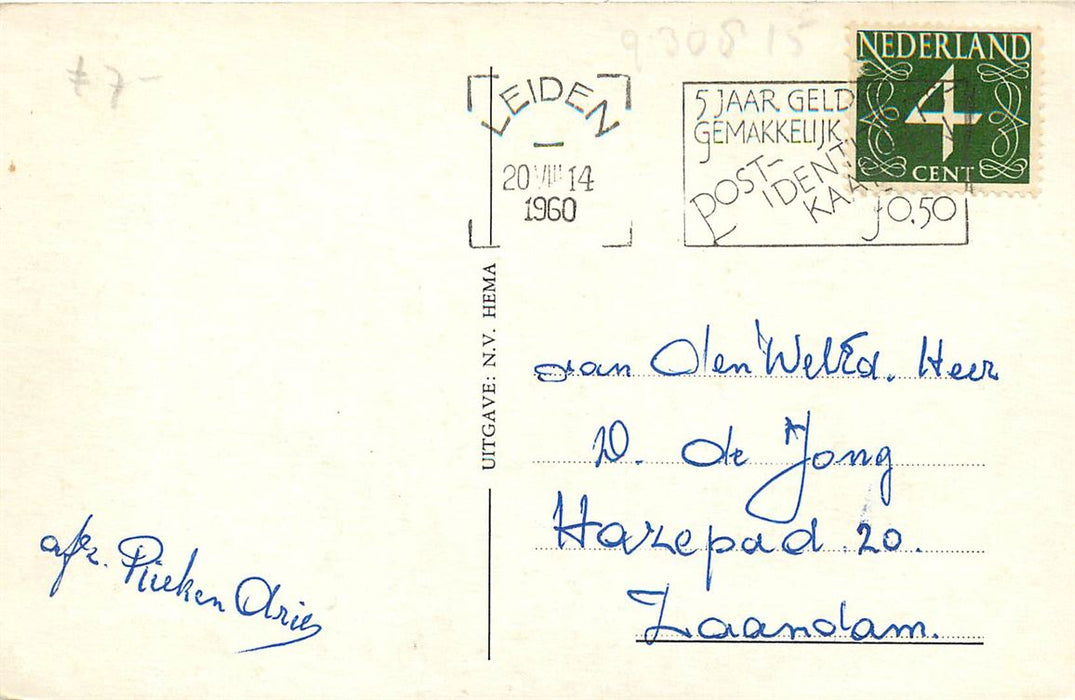 £7-
930815
LEIDEN
20 VIII 14
1960
5 JAAR GELD
GEMAKKELIJK
POST-
IDENTI
KAA
f0,50
NEDERLAND
4
CENT
UITGAVE: N.V. HEMA
aan Den WelEd. Heer
D. de Jong
Hazepad 20.
Zaandam.
afz. Riek en Dries